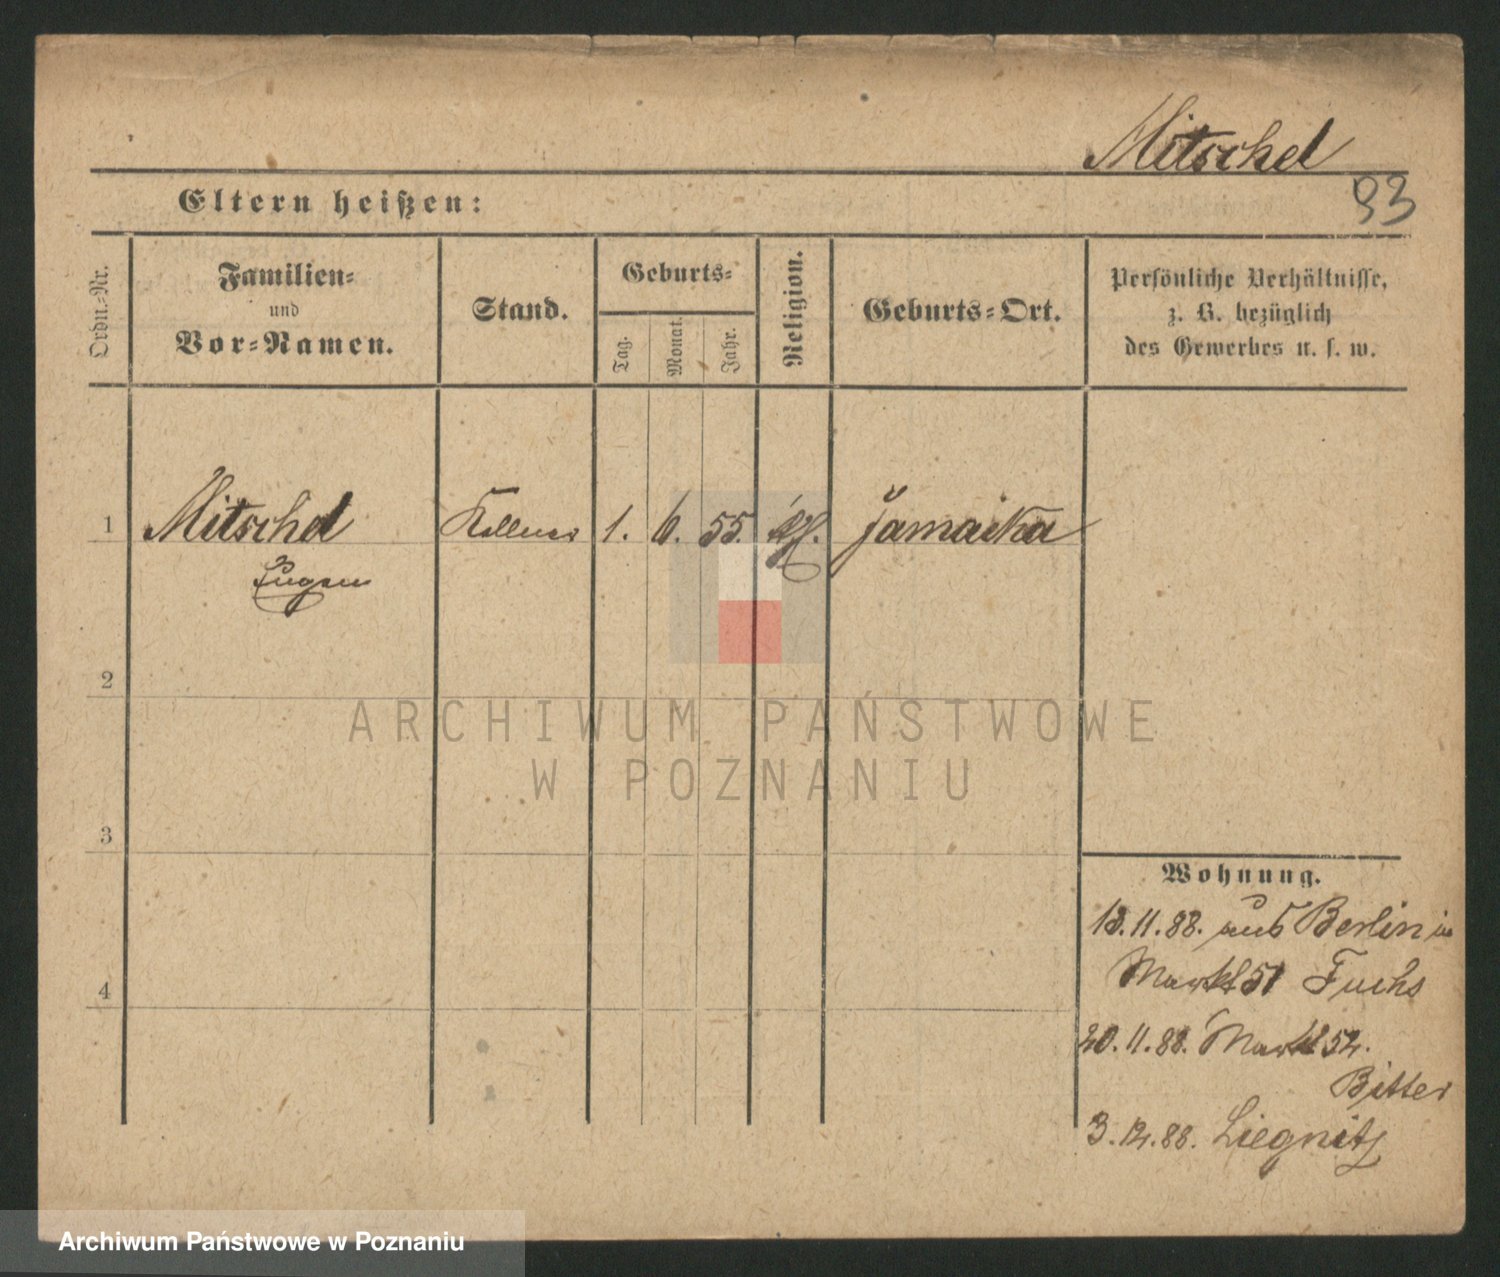 Mitschel
93
Eltern heißen:
Ordn.-Nr.
Familien-
und
Vor-Namen.
Stand.
Geburts-
Tag.
Monat.
Jahr.
Religion.
Geburts-Ort.
Persönliche Verhältnisse,
z. B. bezüglich
des Gewerbes u. s. w.
1 Mitschel Kellner 1. 6. 55. Jamaika
Eugen
2
3
4
Wohnung.
13.11.88. aus Berlin in
Markt 51 Fuchs
20.11.88. Markt 52.
Bitter
3.12.88. Liegnitz
ARCHIWUM PAŃSTWOWE
W POZNANIU
Archiwum Państwowe w Poznaniu